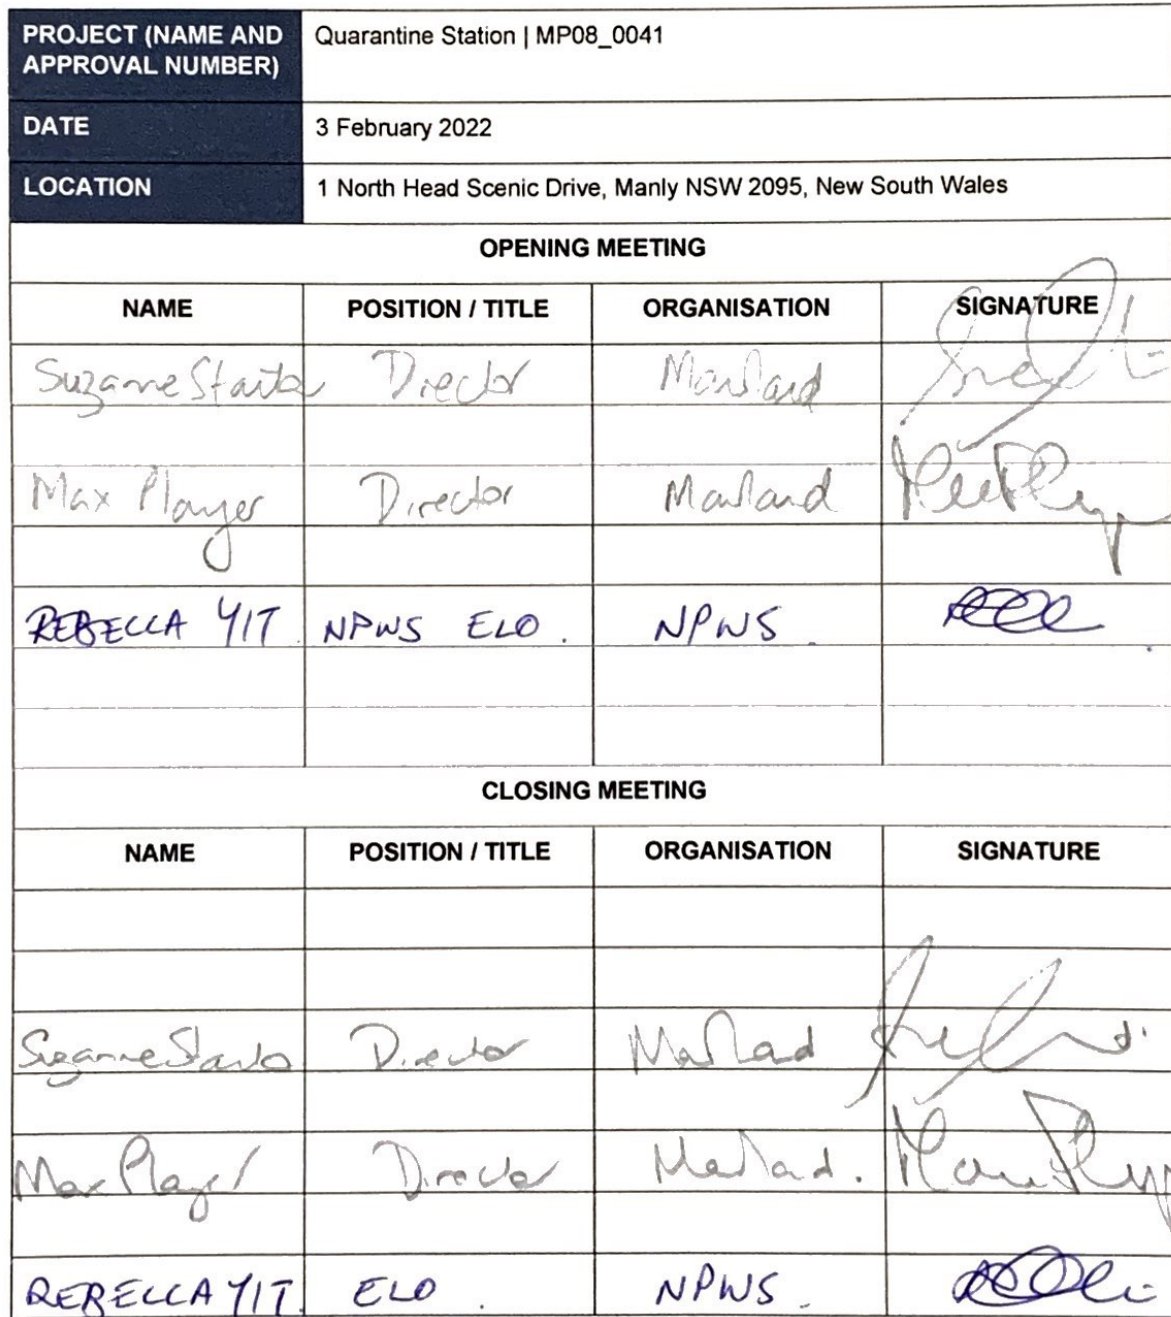 PROJECT (NAME AND Quarantine Station | MP08_0041
APPROVAL NUMBER)
DATE 3 February 2022
LOCATION 1 North Head Scenic Drive, Manly NSW 2095, New South Wales
OPENING MEETING
NAME POSITION / TITLE ORGANISATION SIGNATURE
Suzanne Director Mawland
Max Player Director Mawland
REBECCA YIT NPWS ELO. NPWS.
CLOSING MEETING
NAME POSITION / TITLE ORGANISATION SIGNATURE
Suzanne Director Mawland
Max Player Director Mawland.
REBECCA YIT. ELO. NPWS.